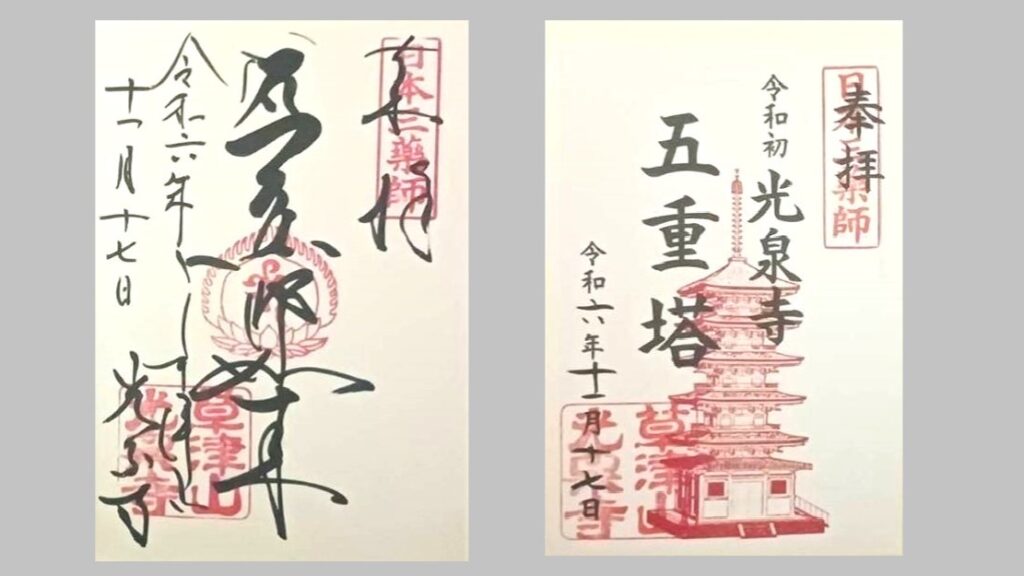 奉拝
日本三薬師
令和六年
十一月十七日
光泉寺
草津山
光泉寺
奉拝
日本三薬師
令和初
光泉寺
五重塔
令和六年十一月十七日
草津山
光泉寺